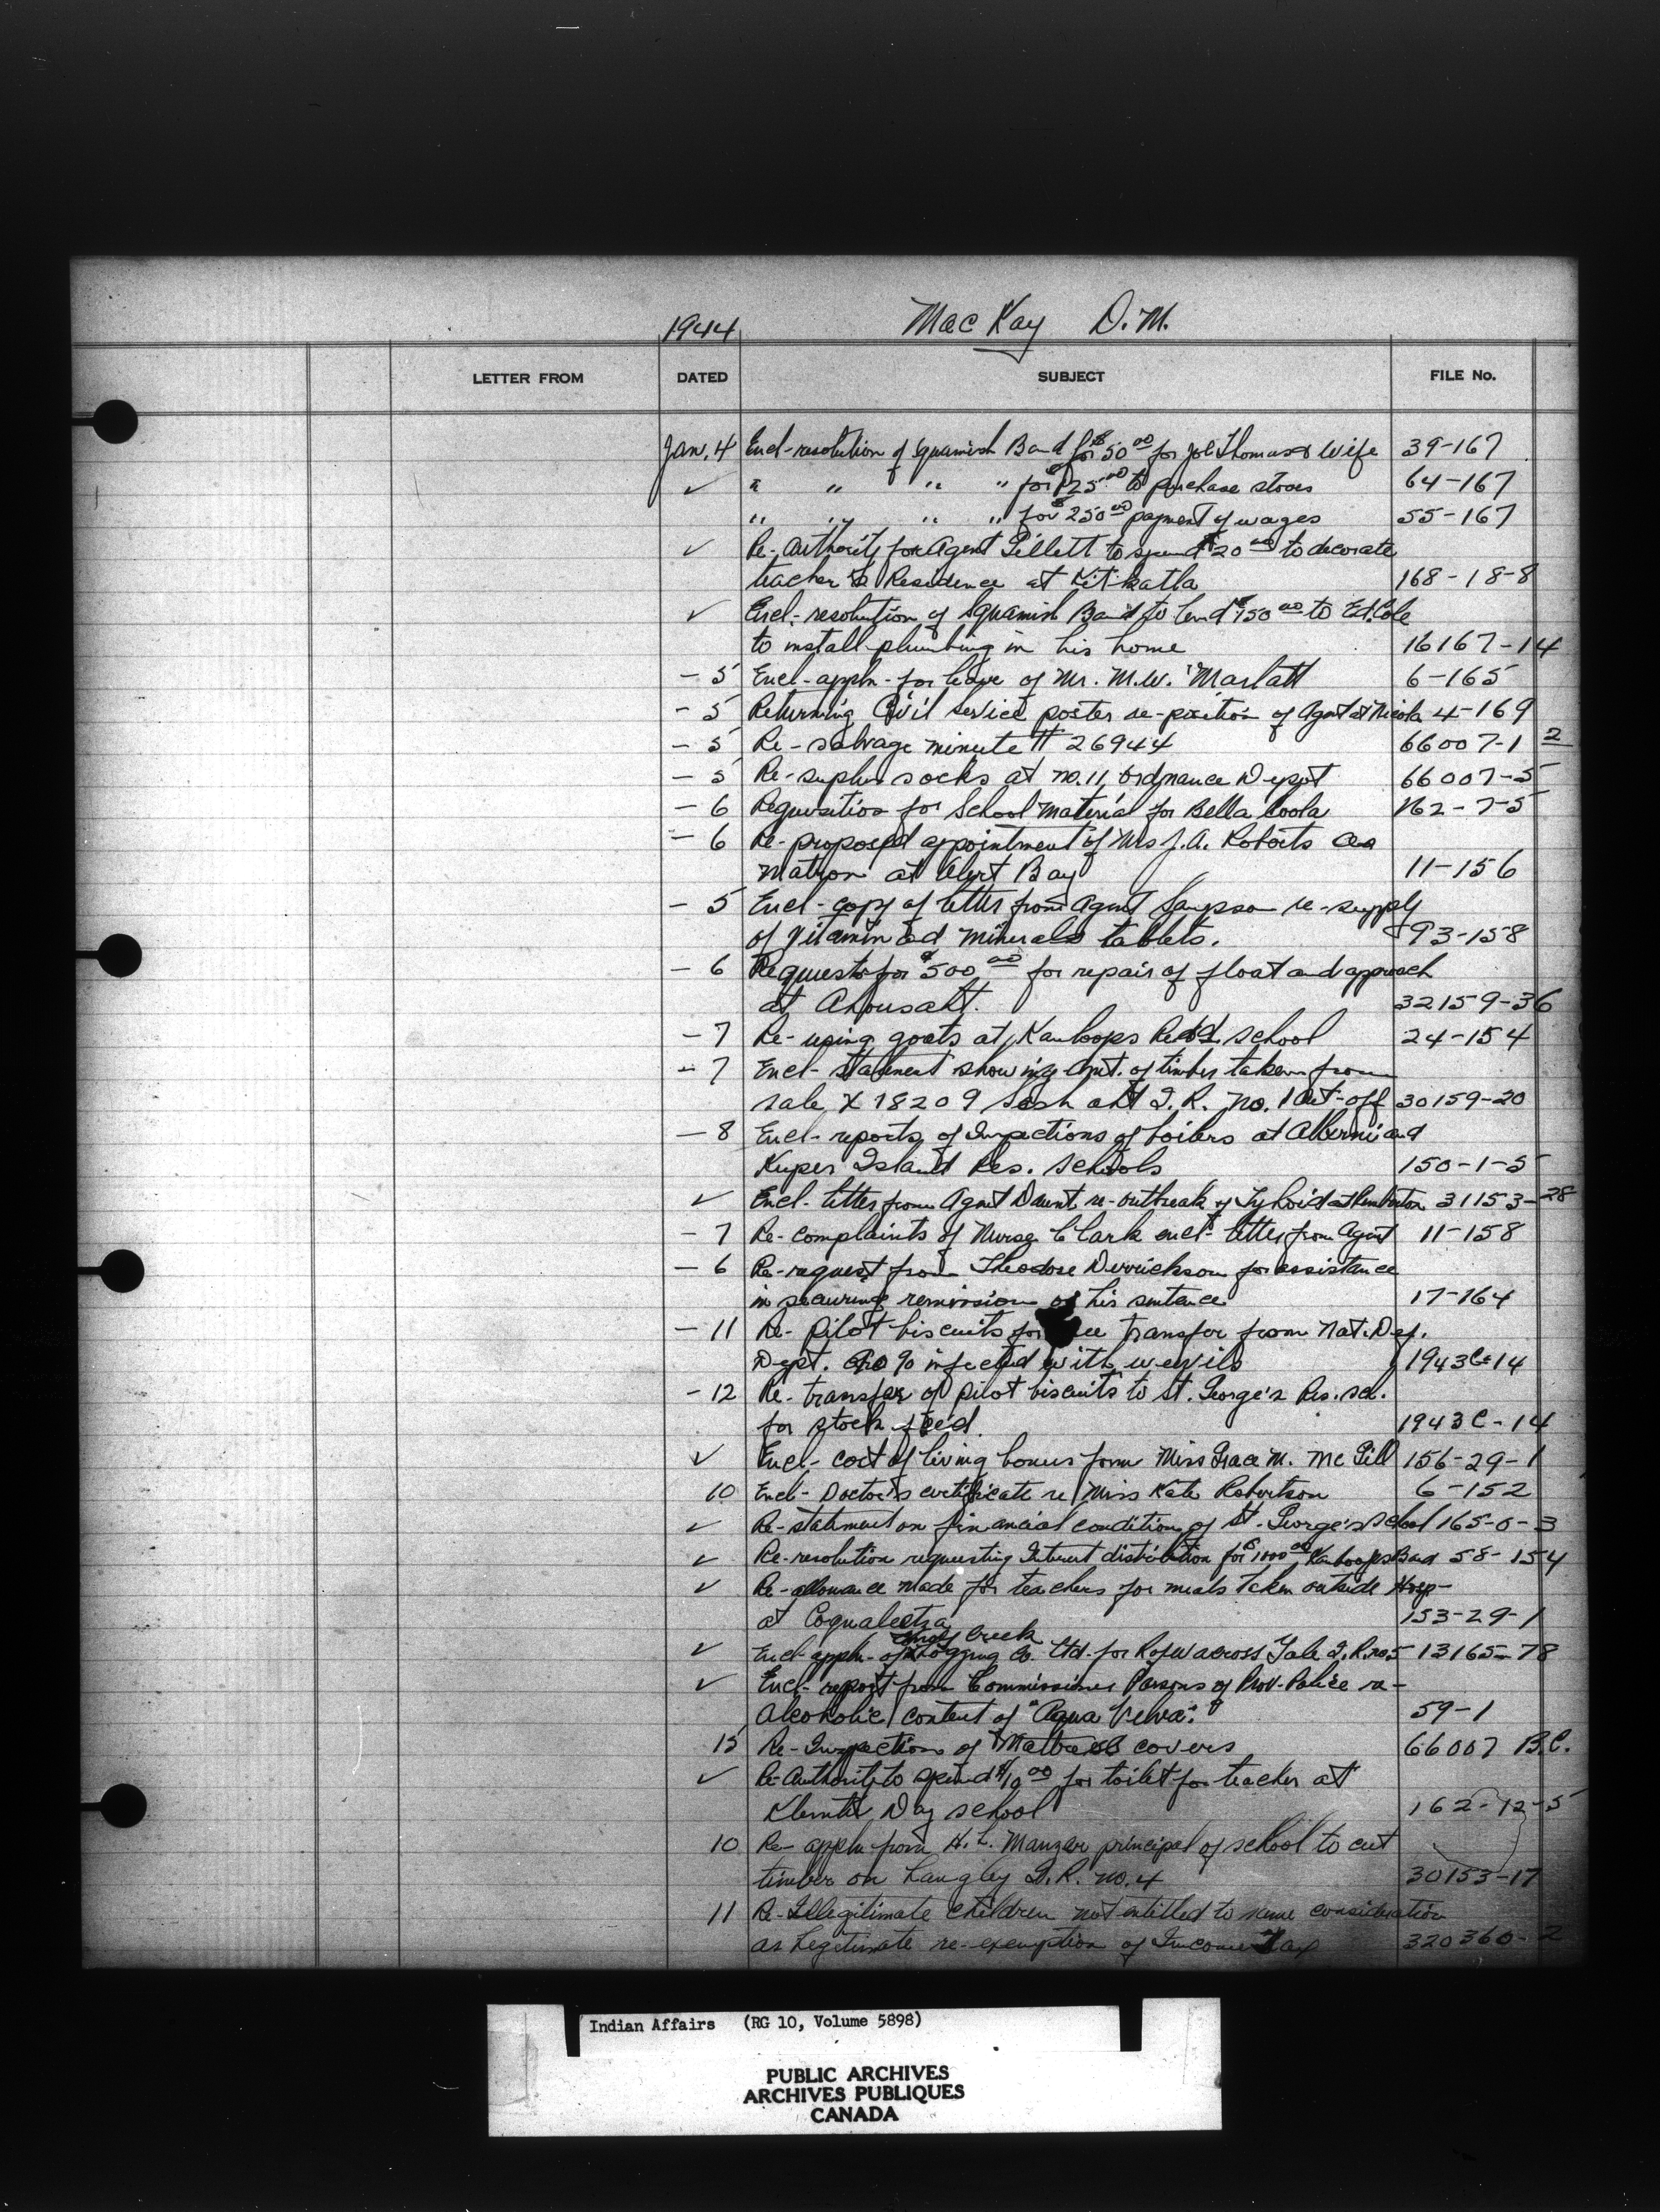 1944 MacKay D.M.
LETTER FROM DATED SUBJECT FILE No.
Jan. 4 Encl-resolution of Squamish Band for $50.00 for Joe Thomas & Wife 39-167
✓ " " " " for $125.00 to purchase stoves 64-167
" " " " for $250.00 payment of wages 55-167
✓ Re-Authority for Agent Gillett to spend $20.00 to decorate
teacher's Residence at Kitkatla 168-18-8
✓ Encl-resolution of Squamish Band to lend $150.00 to Ed. Cole
to install plumbing in his home 16167-14
- 5 Encl-appln-for leave of Mr. M.W. Marlatt 6-165
- 5 Returning Civil service poster re-position of Agent at Nicola 4-169
- 5 Re-salvage minute # 26944 66007-1 2
- 5 Re-suplus socks at No. 11, Ordnance Depot 66007-5
- 6 Requisition for School Material for Bella Coola 162-7-5
- 6 Re-proposed appointment of Mrs J.A. Roberts as
Matron at Alert Bay 11-156
- 5 Encl-copy of letter from Agent Sampson re-supply
of Vitamin and Minerals tablets. 93-158
- 6 Requests for $500.00 for repair of float and approach
at Ahousaht. 32159-36
- 7 Re-using goats at Kamloops Resd. school 24-154
- 7 Encl-statement showing Amt. of timber taken from
sale X 18209 I.R. No. 1 Cut-off 30159-20
- 8 Encl-reports of Inspections of boilers at Alberni and
Kuper Island Res. Schools 150-1-5
✓ Encl-letter from Agent Daunt re-outbreak of Typhoid at Pemberton 31153-28
- 7 Re-complaints of Nurse Clark encl-letter from Agent 11-158
- 6 Re-request from Theodore Derrickson for assistance
in securing remission of his sentence 17-164
- 11 Re-Pilot biscuits for free transfer from Nat. Def.
Dept. 90% infected with wevils 1943C-14
- 12 Re-transfer of pilot biscuits to St. George's Res. scl.
for stock feed. 1943C-14
✓ Encl-cost of living bonus form Miss Grace M. McGill 156-29-1
10 Encl-Doctor's certificate re Miss Kate Robertson 6-152
✓ Re-statement on financial condition of St. George's School 165-0-3
✓ Re-resolution requesting Interest distribution for $1000.00 Kamloops Band 58-154
✓ Re-allowance made for teachers for meals taken outside Hosp-
at Coqualeetza 153-29-1
Creek
✓ Encl appln-of Logging Co. Ltd. for Rofw across Yale I.R. no 5 13165-78
✓ Encl-report from Commissioner Parsons of Prov-Police re-
Alcoholic content of "Aqua Velva". 59-1
15 Re-Inspection of Mattress covers 66007 B.C.
✓ Re-Authority to spend $10.00 for toilet for teacher at
Klemtu Day school 162-12-5
10 Re-appln from H.L. Manzer principal of school to cut
timber on Langley I.R. No. 4 30153-17
11 Re-Illegitimate Children not entitled to same consideration
as Legitimate re-exemption of Income Tax 320360-2
Indian Affairs (RG 10, Volume 5898)
PUBLIC ARCHIVES
ARCHIVES PUBLIQUES
CANADA